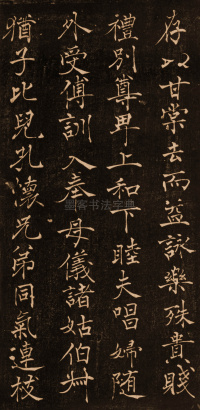 存以甘棠去而益詠樂殊貴賤
禮別尊卑上和下睦夫唱婦隨
外受傅訓入奉母儀諸姑伯叔
猶子比兒孔懷兄弟同氣連枝
墨客书法字典